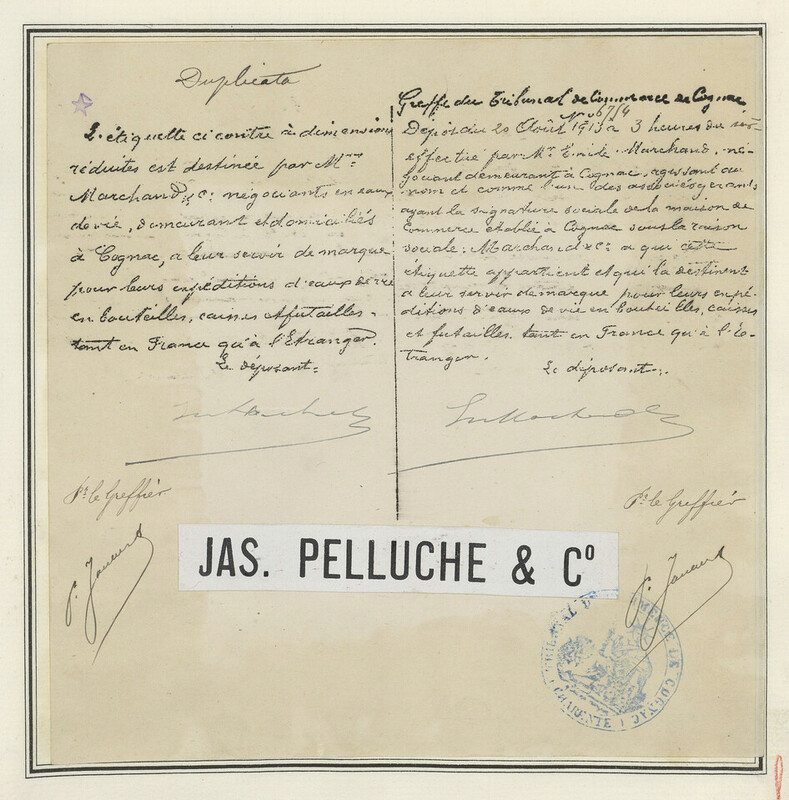 Duplicata
L'étiquette ci contre à dimensions
réduites est destinée par Mrs
Marchand & Ce négociants en eaux
de vie, demeurant et domiciliés
à Cognac, a leur servir de marque
pour leurs expéditions d'eaux de vie
en bouteilles, caisses et futailles
tant en France qu'à l'Etranger.
Le déposant:
Pr le Greffier
Greffe du Tribunal de Commerce de Cognac
No 6714
Dépôt du 20 Août 1913 à 3 heures du soir
effectué par Mr Emile Marchand, né-
gociant demeurant à Cognac, agissant au
nom et comme l'un des associés gérants
ayant la signature sociale de la maison de
Commerce établie à Cognac sous la raison
sociale: Marchand & Ce a qui cette
étiquette appartient et qui la destinent
a leur servir de marque pour leurs expé-
ditions d'eaux de vie en bouteilles, caisses
et futailles tant en France qu'à l'é-
tranger.
Le déposant:
Pr le Greffier
JAS. PELLUCHE & Co
TRIBUNAL DE COMMERCE DE COGNAC
CHARENTE